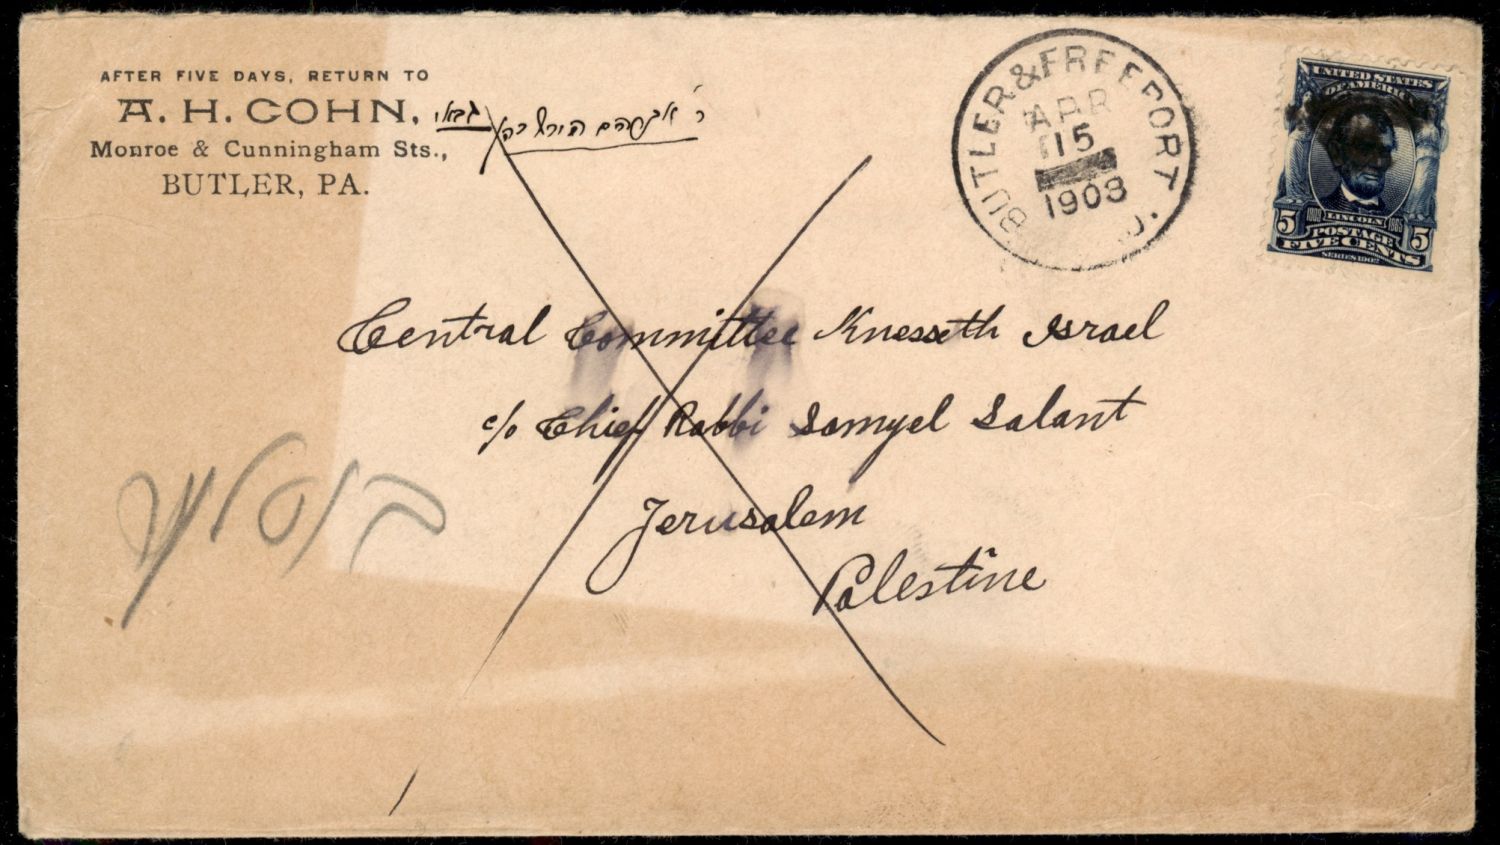 AFTER FIVE DAYS, RETURN TO
A. H. COHN,
Monroe & Cunningham Sts.,
BUTLER, PA.
ר' אברהם הירש כהן גבאי
BUTLER & FREEPORT
APR
15
1903
UNITED STATES
OF AMERICA
1809 LINCOLN 1865
5 POSTAGE 5
FIVE CENTS
SERIES 1902
Central Committee Knesseth Israel
c/o Chief Rabbi Samyel Salant
Jerusalem
Palestine